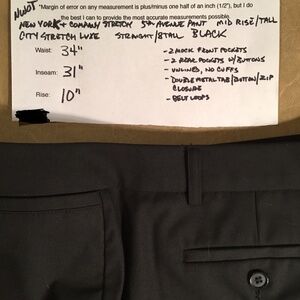 NWOT
*Margin of error on any measurement is plus/minus one half of an inch (1/2"), but I do
the best I can to provide the most accurate measurements possible.
NEW YORK + COMPANY STRETCH 5TH AVENUE PANT MID RISE/TALL
CITY STRETCH LUXE STRAIGHT/8TALL BLACK
Waist: 34"
Inseam: 31"
Rise: 10"
- 2 MOCK FRONT POCKETS
- 2 REAR POCKETS W/BUTTONS
- UNLINED, NO CUFFS
- DOUBLE METAL TAB/BUTTON/ZIP
CLOSURE
- BELT LOOPS